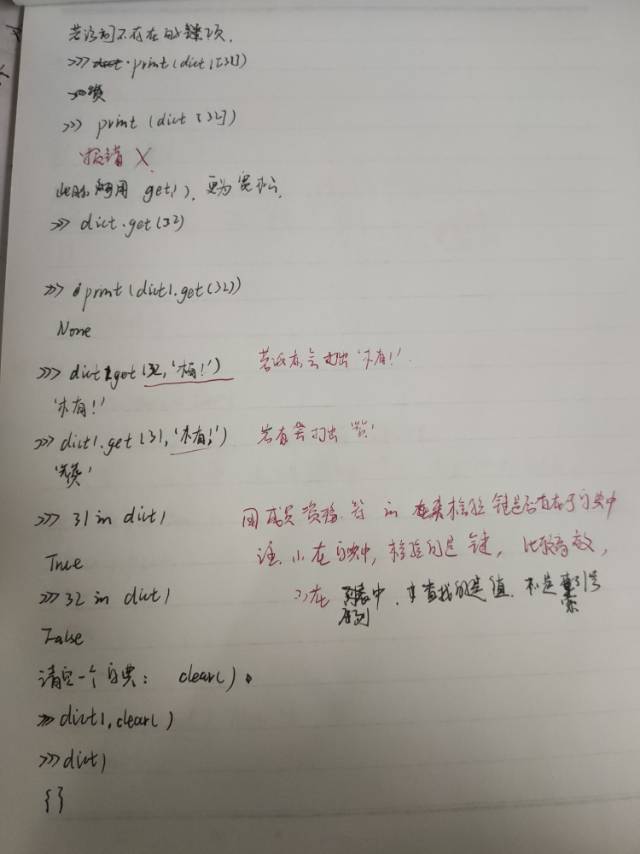 若访问不存在的键项.
>>> print(dict1[31])
赞
>>> print(dict[32])
报错 X
此时可用 get(), 更为宽松.
>>> dict.get(32)
>>> print(dict1.get(32))
None
>>> dict1.get(32,'木有!') 若没有会打出'木有!'.
'木有!'
>>> dict1.get(31,'木有!') 若有会打出'赞'
'赞'
>>> 31 in dict1 用成员资格符 in 来检验键是否存在于字典中
True 注 1) 在字典中, 检验的是键, 比较高效,
>>> 32 in dict1 2) 在列表中, 查找的是值. 不是索引号
序列
False
清空一个字典: clear().
>> dict1.clear()
>>> dict1
{}